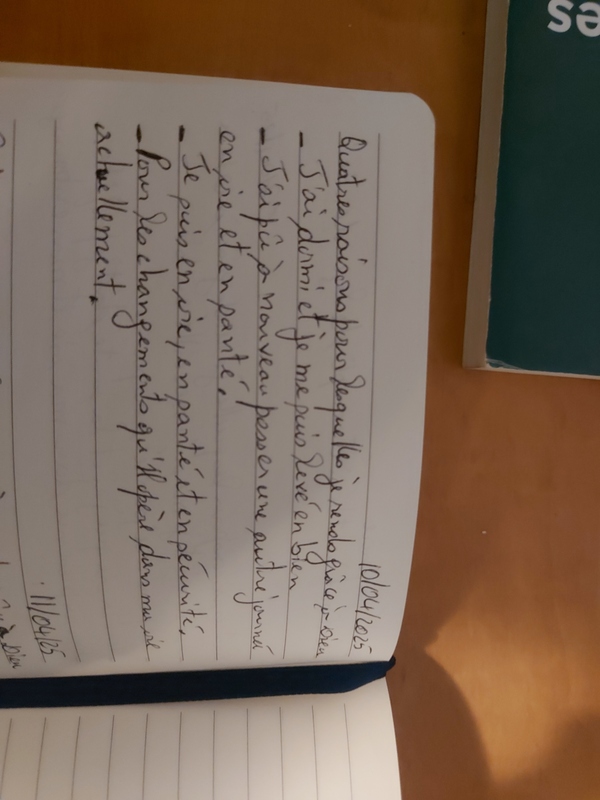 10/04/2025
Quatres raisons pour lesquelles je rends grâce à Dieu
- J'ai dormi et je me suis levé en bien
- J'ai pû à nouveau passer une autre journé
en vie et en santé.
- Je suis en vie, en santé et en sécurité.
- Pour les changements qu'Il opère dans ma vie
actuellement.
11/04/25
à Dieu
es